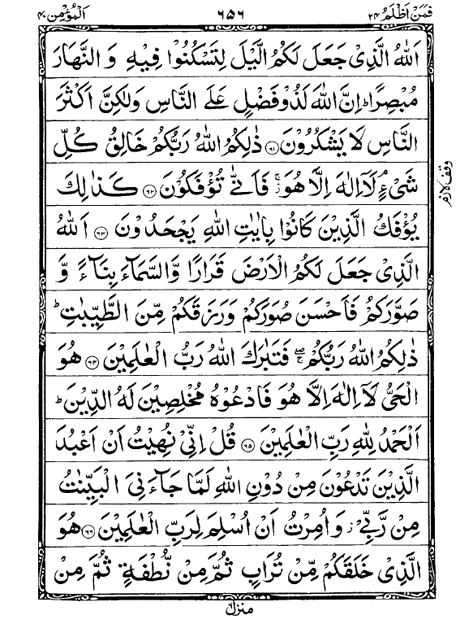 فمن اظلم ٢٤ ٦٥٦ المؤمن ٤٠
اَللّٰهُ الَّذِیْ جَعَلَ لَكُمُ الَّیْلَ لِتَسْكُنُوْا فِیْهِ وَ النَّهَارَ
مُبْصِرًا ؕ اِنَّ اللّٰهَ لَذُوْ فَضْلٍ عَلَی النَّاسِ وَلٰكِنَّ اَكْثَرَ
النَّاسِ لَا یَشْكُرُوْنَ ﴿۶۱﴾ ذٰلِكُمُ اللّٰهُ رَبُّكُمْ خَالِقُ كُلِّ
شَیْءٍ ۘ لَاۤ اِلٰهَ اِلَّا هُوَ ۫ فَاَنّٰی تُؤْفَكُوْنَ ﴿۶۲﴾ كَذٰلِكَ
وقف لازم
یُؤْفَكُ الَّذِیْنَ كَانُوْا بِاٰیٰتِ اللّٰهِ یَجْحَدُوْنَ ﴿۶۳﴾ اَللّٰهُ
الَّذِیْ جَعَلَ لَكُمُ الْاَرْضَ قَرَارًا وَّالسَّمَآءَ بِنَآءً وَّ
صَوَّرَكُمْ فَاَحْسَنَ صُوَرَكُمْ وَرَزَقَكُمْ مِّنَ الطَّیِّبٰتِ ؕ
ذٰلِكُمُ اللّٰهُ رَبُّكُمْ ۖۚ فَتَبٰرَكَ اللّٰهُ رَبُّ الْعٰلَمِیْنَ ﴿۶۴﴾ هُوَ
الْحَیُّ لَاۤ اِلٰهَ اِلَّا هُوَ فَادْعُوْهُ مُخْلِصِیْنَ لَهُ الدِّیْنَ ؕ
اَلْحَمْدُ لِلّٰهِ رَبِّ الْعٰلَمِیْنَ ﴿۶۵﴾ قُلْ اِنِّیْ نُهِیْتُ اَنْ اَعْبُدَ
الَّذِیْنَ تَدْعُوْنَ مِنْ دُوْنِ اللّٰهِ لَمَّا جَآءَنِیَ الْبَیِّنٰتُ
مِنْ رَّبِّیْ ؗ وَاُمِرْتُ اَنْ اُسْلِمَ لِرَبِّ الْعٰلَمِیْنَ ﴿۶۶﴾ هُوَ
الَّذِیْ خَلَقَكُمْ مِّنْ تُرَابٍ ثُمَّ مِنْ نُّطْفَةٍ ثُمَّ مِنْ
منزل